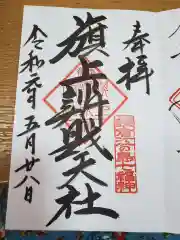 奉拝
旗上辨財天社
令和元年五月廿八日